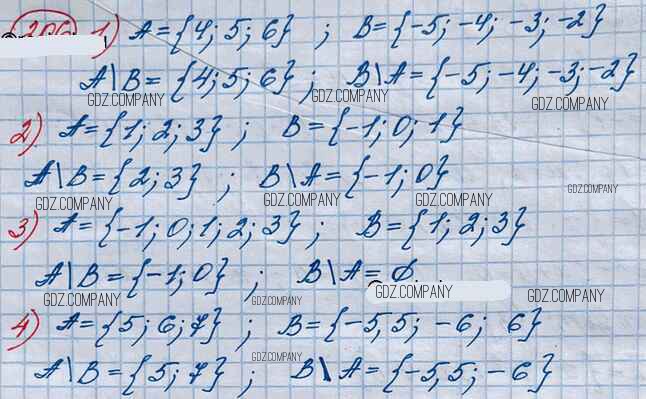 206 1) A={4; 5; 6} ; B={-5; -4; -3; -2}
A\B= {4; 5; 6} ; B\A={-5; -4; -3; -2}
GDZ.COMPANY GDZ.COMPANY GDZ.COMPANY
2) A={1; 2; 3} ; B={-1; 0; 1}
A\B={2; 3} ; B\A={-1; 0}
GDZ.COMPANY GDZ.COMPANY GDZ.COMPANY GDZ.COMPANY
3) A={-1; 0; 1; 2; 3} ; B={1; 2; 3}
A\B={-1; 0} ; B\A=Ø
GDZ.COMPANY GDZ.COMPANY GDZ.COMPANY GDZ.COMPANY
4) A={5; 6; 7} ; B={-5,5; -6; 6}
GDZ.COMPANY
A\B={5; 7} ; B\A={-5,5; -6}